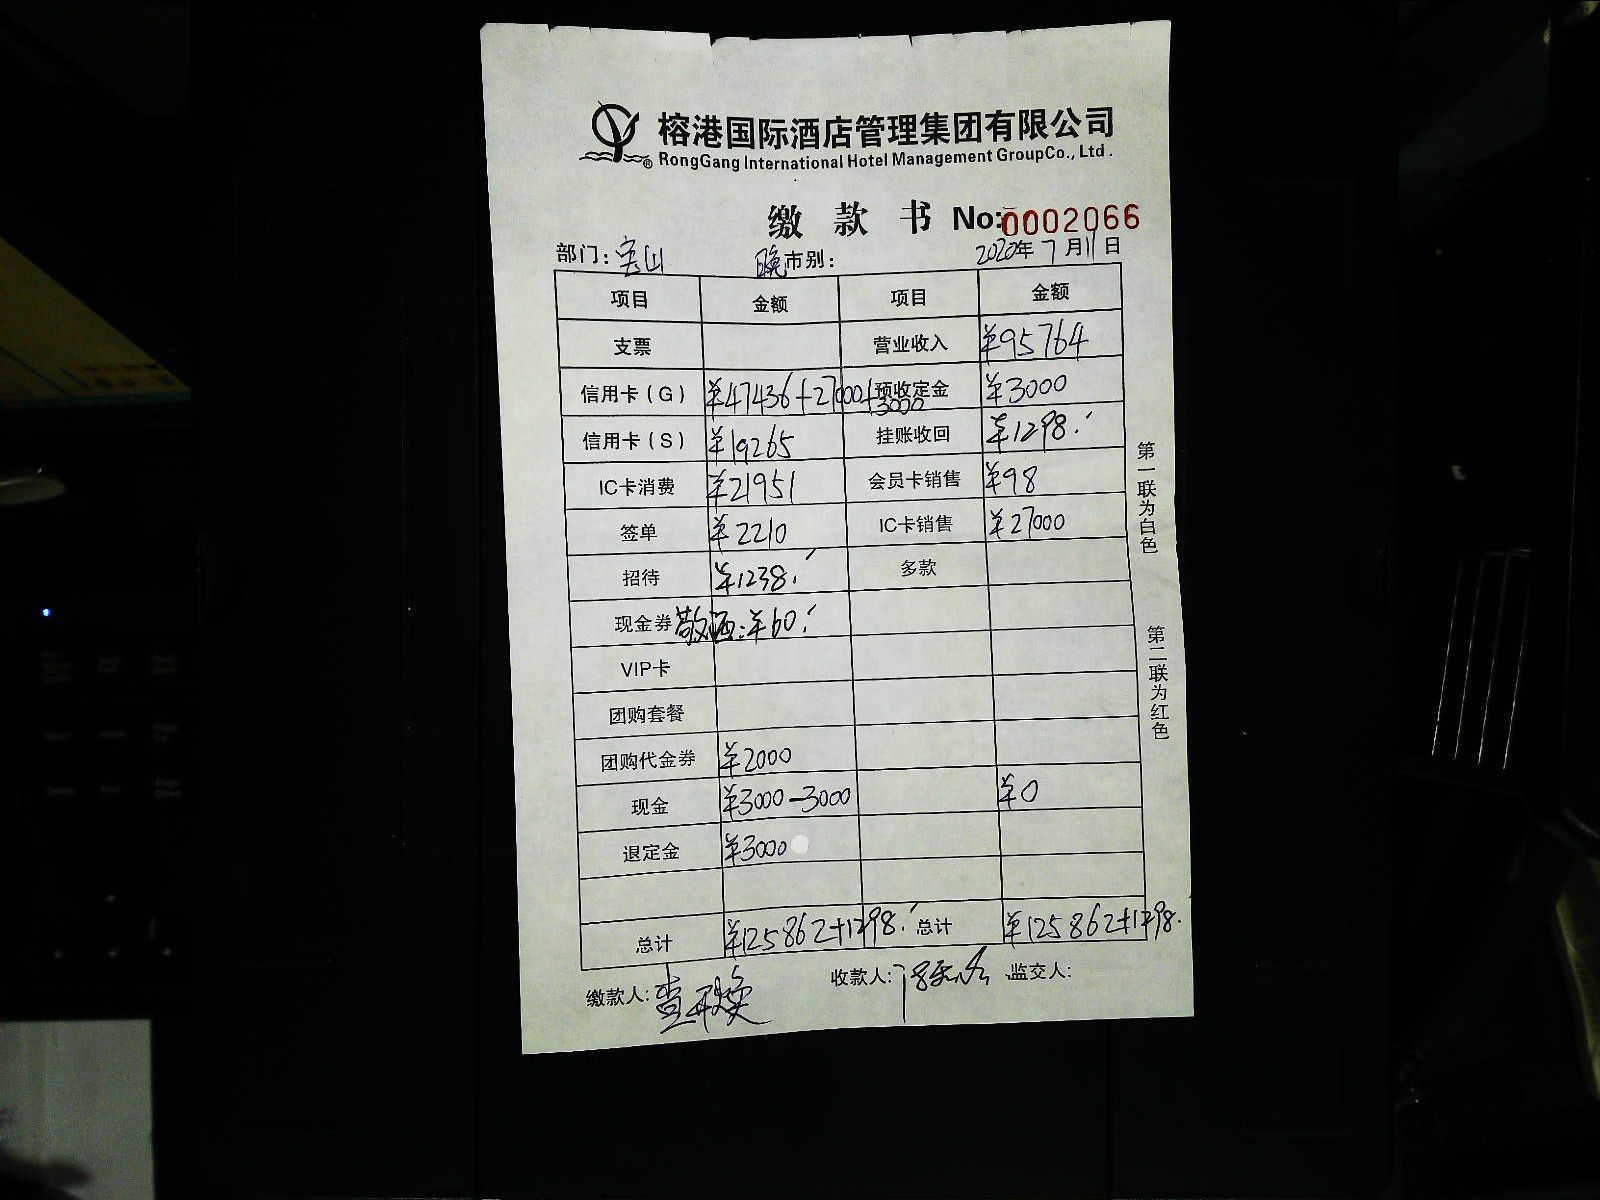 榕港国际酒店管理集团有限公司
® RongGang International Hotel Management GroupCo., Ltd.
缴 款 书 No:0002066
部门: 宝山 晚市别: 2020年7月11日
项目 金额 项目 金额
支票 营业收入 ¥95764
信用卡(G) ¥47436+27000+3000 预收定金 ¥3000
信用卡(S) ¥19265 挂账收回 ¥1298.
IC卡消费 ¥21951 会员卡销售 ¥98
签单 ¥2210 IC卡销售 ¥27000
招待 ¥1238. 多款
现金券 敬酒:¥60.
VIP卡
团购套餐
团购代金券 ¥2000
现金 ¥3000-3000 ¥0
退定金 ¥3000
总计 ¥125862+1298. 总计 ¥125862+1298.
缴款人: 收款人: 监交人:
第一联为白色
第二联为红色